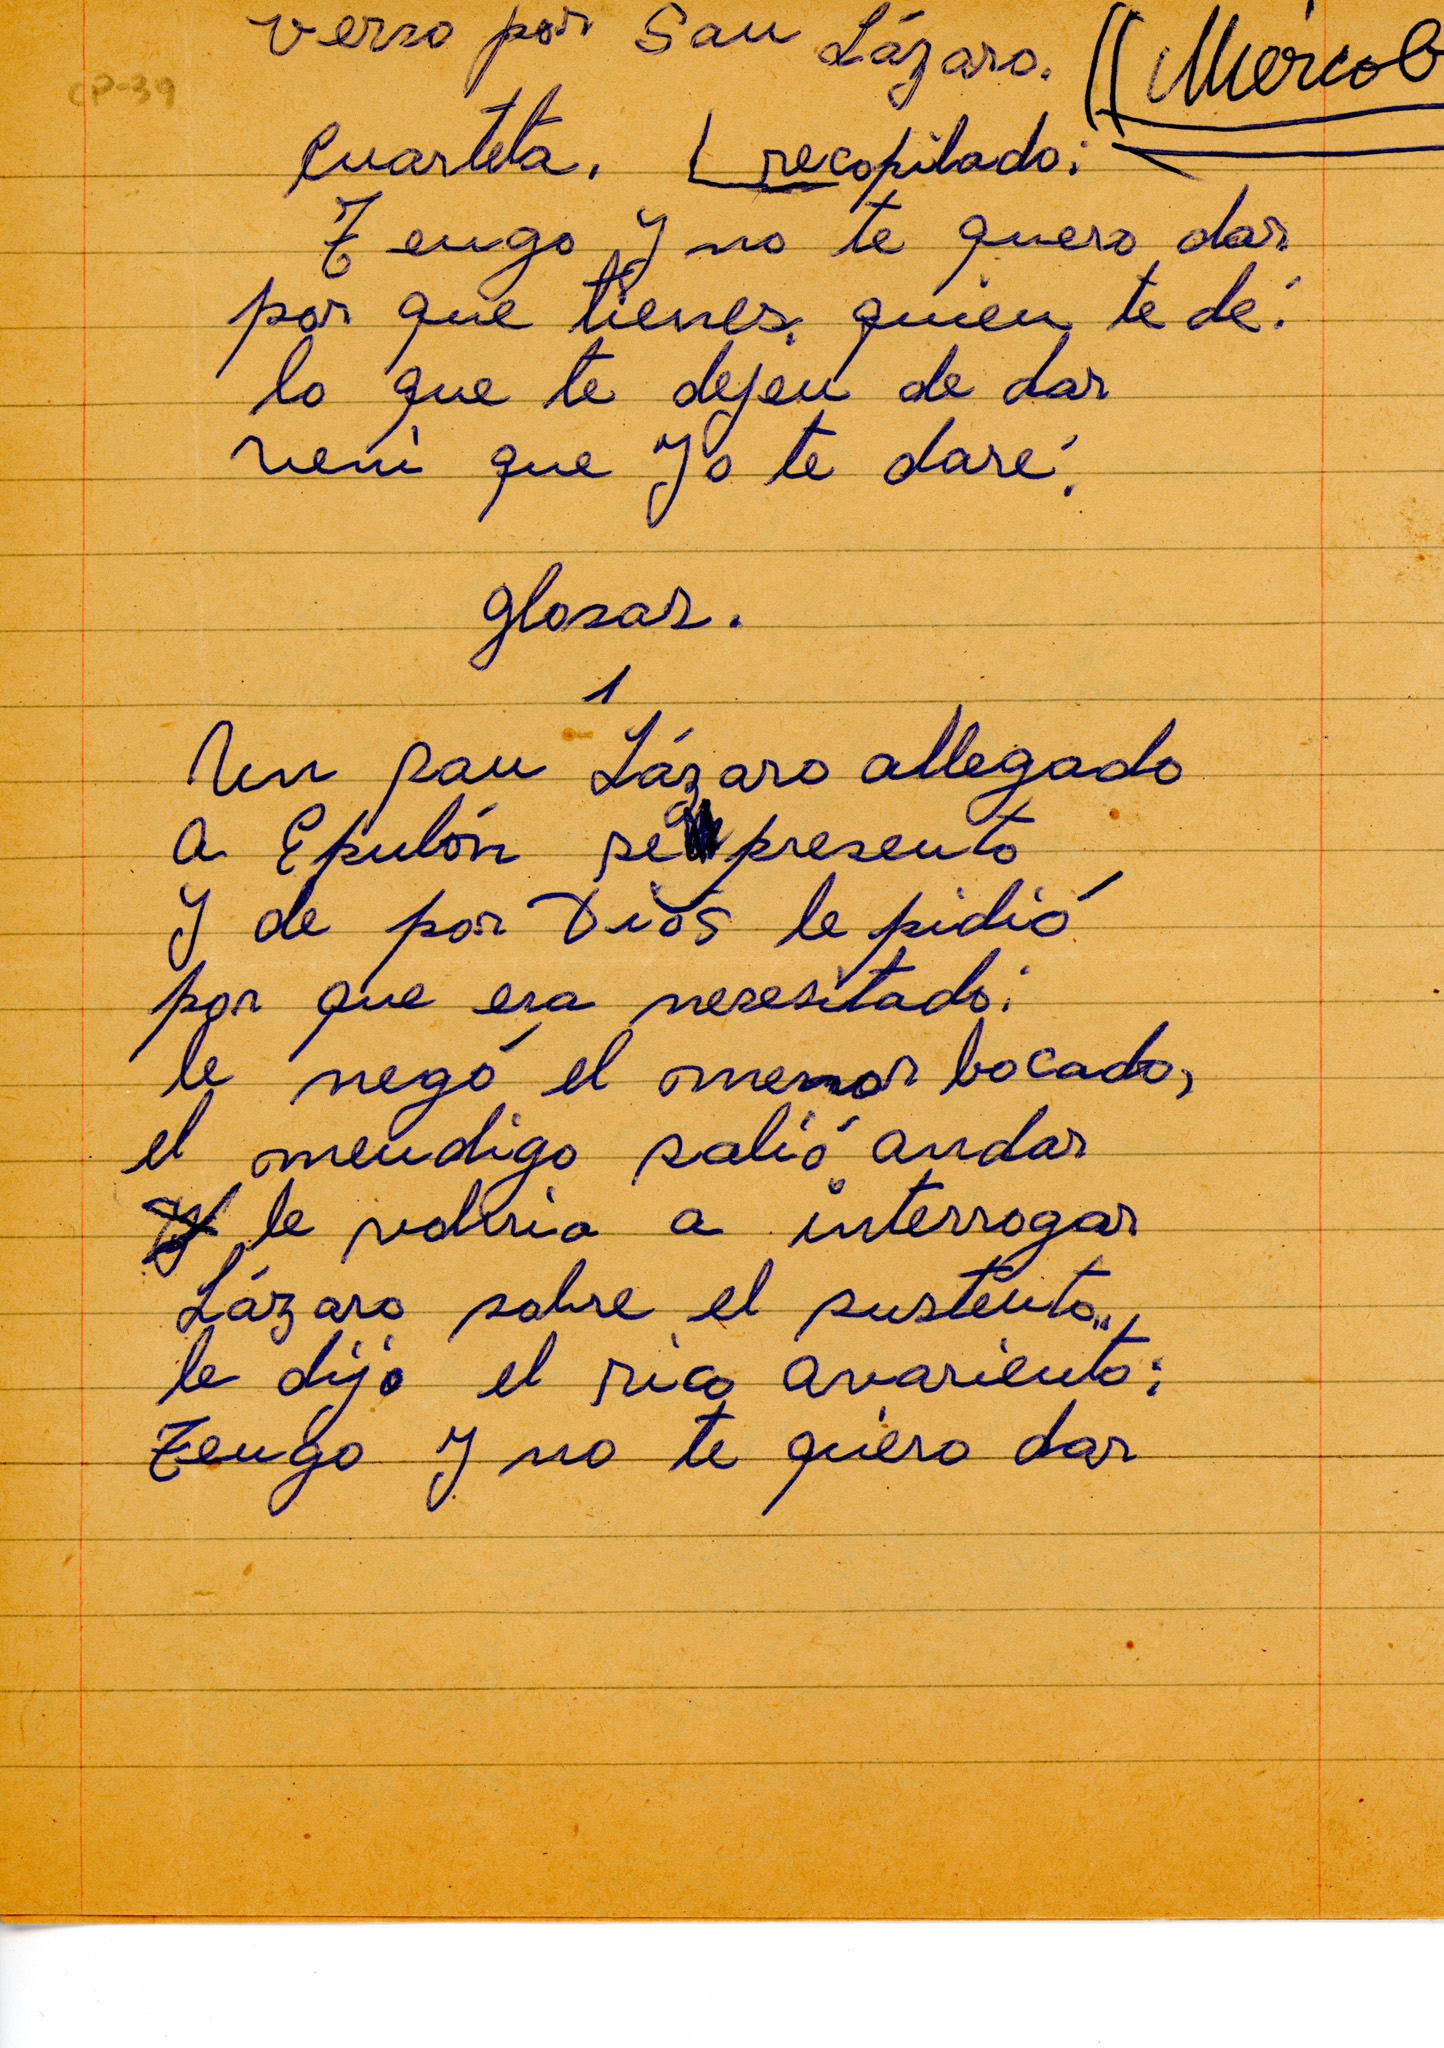 verso por San Lázaro. ((Miércol
CP-39
Cuarteta. recopilado:
Tengo y no te quero dar
por que tienes, quien te dé:
lo que te dejen de dar
vení que yo te daré.
glosar.
1
Un san Lázaro allegado
a Epulón se presento
y de por Dios le pidió
por que era nesesitado:
le negó el menor bocado,
el mendigo salió andar
le volvria a interrogar
Lázaro sobre el sustento,,
le dijo el rico avariento:
Tengo y no te quiero dar